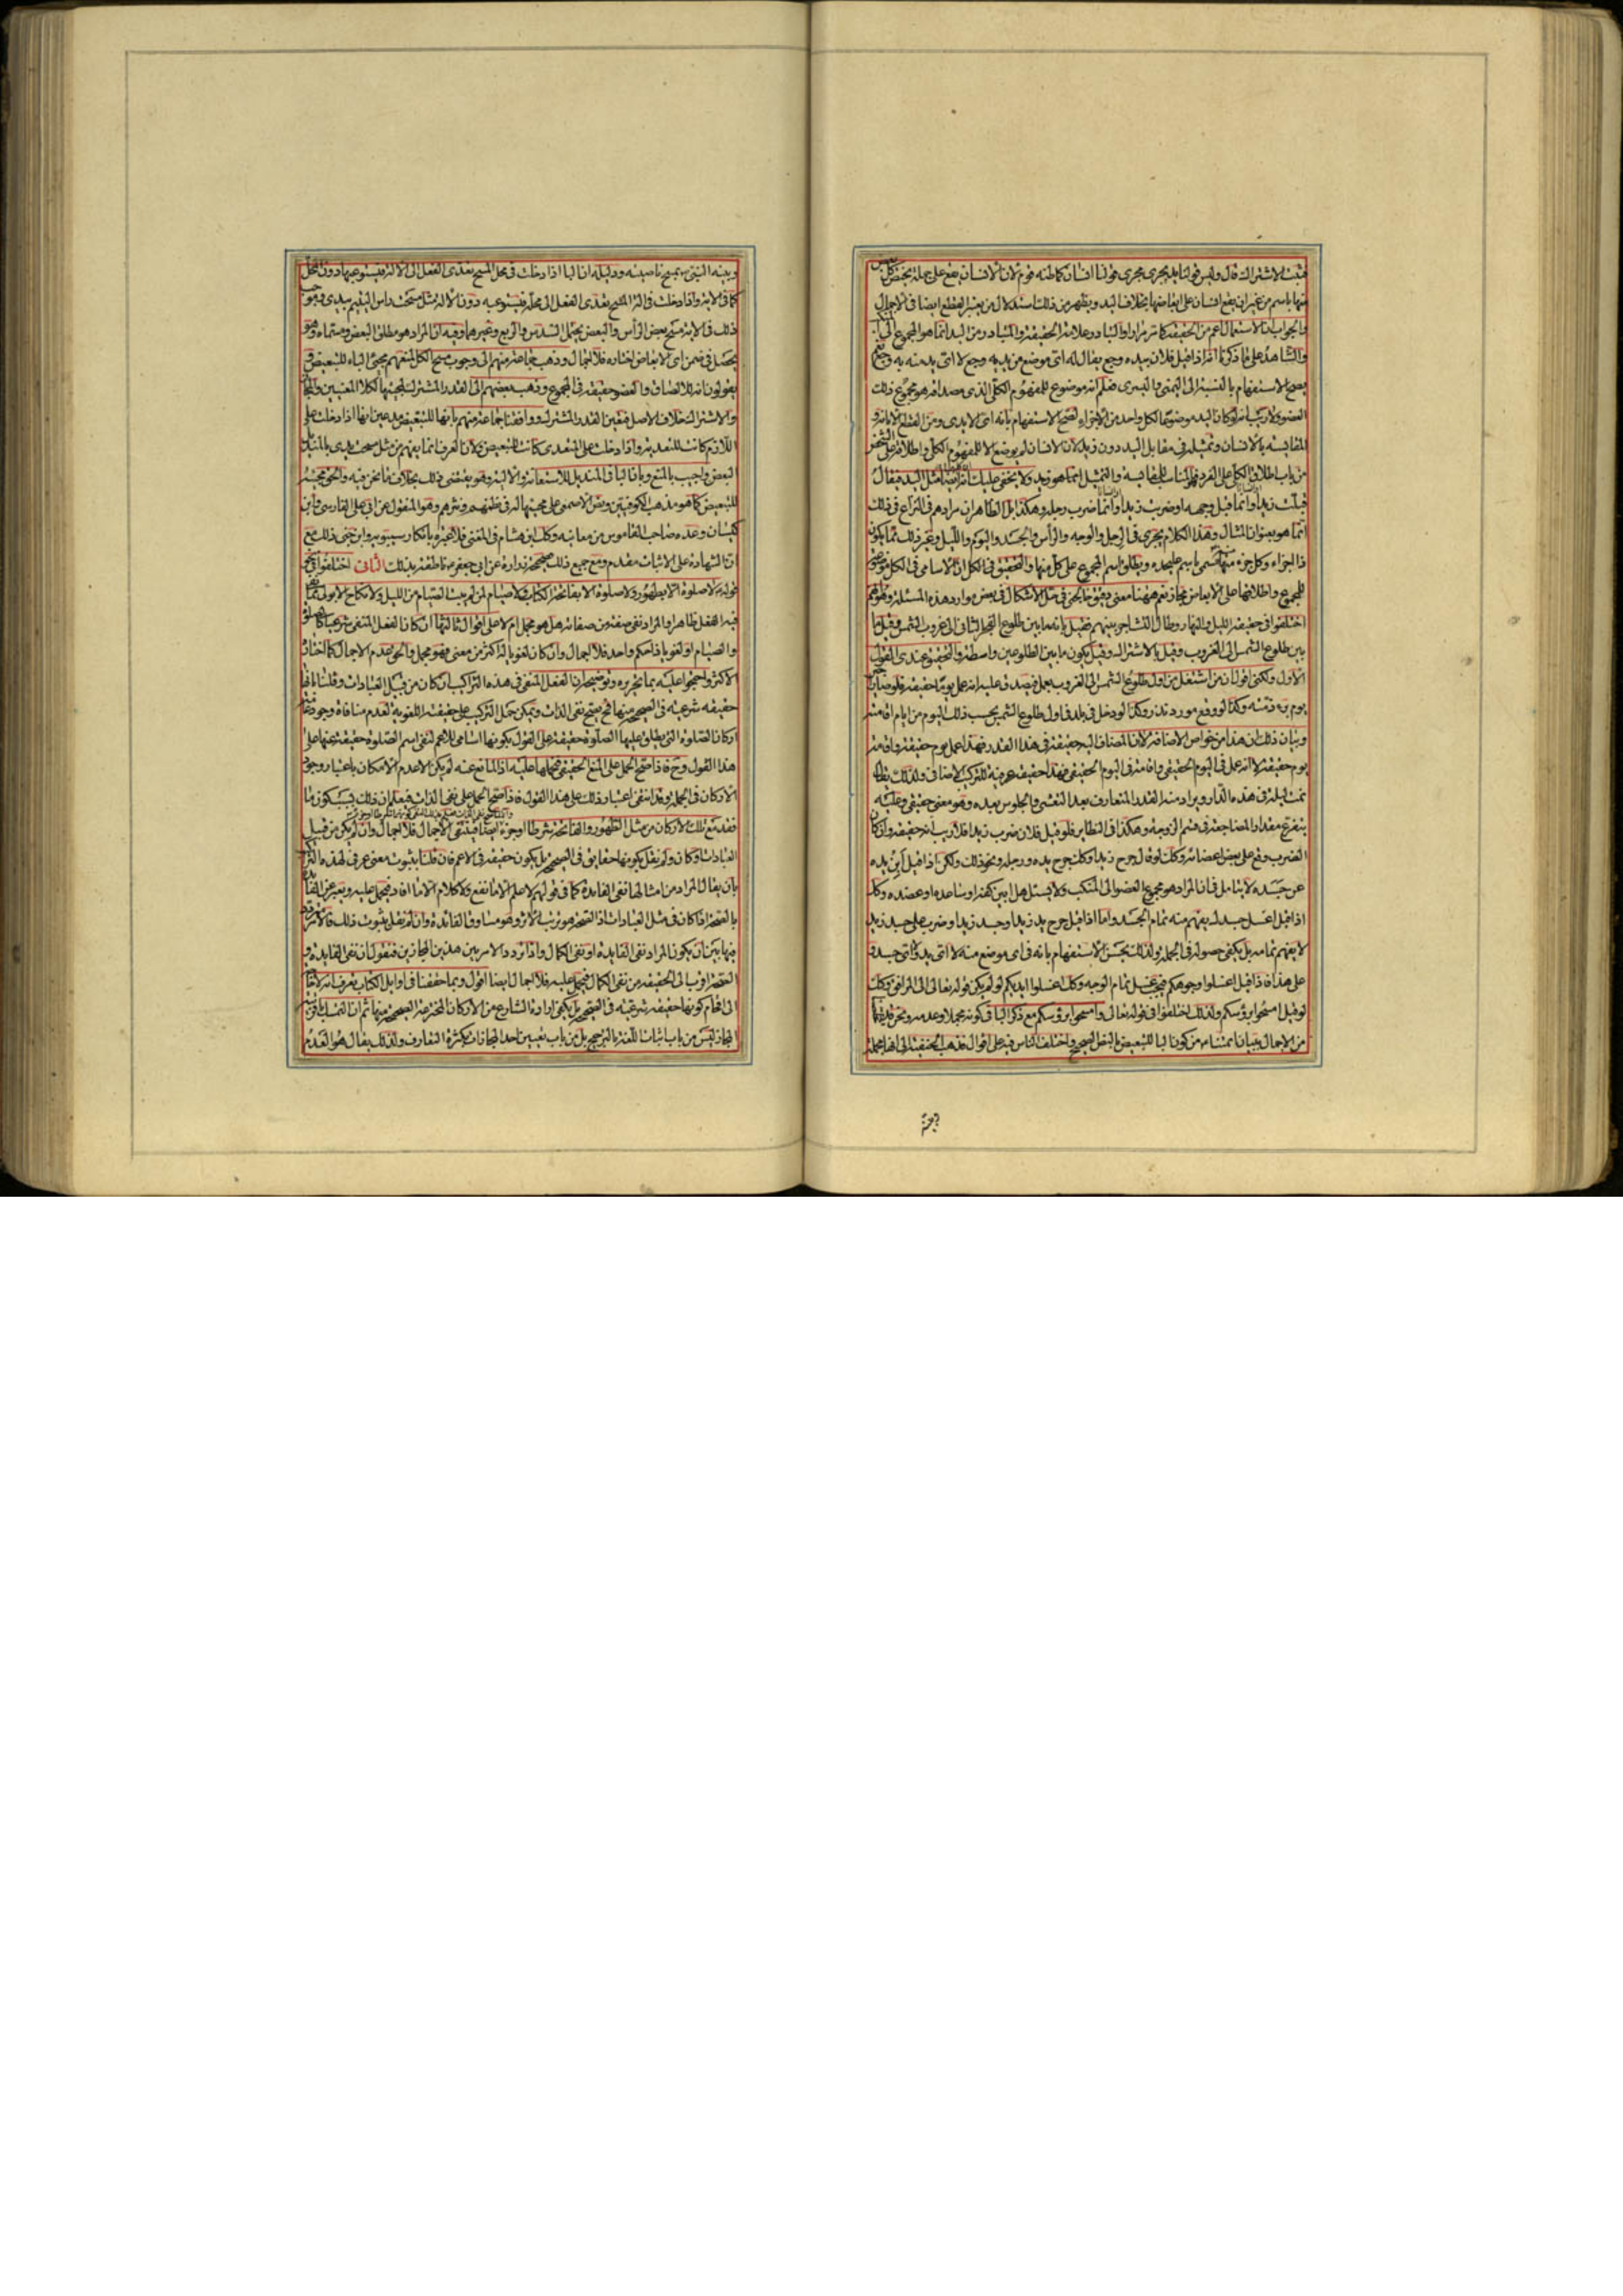 فيثبت الاشتراك قال وليس قولنا يد يجري مجرى قولنا انسان كما ظنه قوم لان الانسان يقع على جملة يختص كل بعض
منها باسم من غير ان يقع انسان على ابعاضها بخلاف اليد ويظهر من ذلك استدلال من يعتبر القطع ايضا في الاجمال
والجواب ان الاستعمال اعم من الحقيقة كما مر مرارا والتبادر علامة الحقيقة والمتبادر من اليد انما هو المجموع الى
والشاهد على ما ذكرنا انه اذا قيل فلان بيده وجع يقال له اي موضع من يده وجع لا اي يد منه به وجع
يصح الاستفهام بالنسبة الى اليمنى واليسرى فعلم انه موضوع للمفهوم الكلي الذي مصداقه هو مجموع ذلك
العضو ولا ريب انه لو كان اليد موضوعا لكل واحد من الاجزاء لصح الاستفهام بانه اي الايدي ومن
المقايسة بالانسان وتمثيله في مقابل اليد دون زيد لان الانسان لم يوضع الا للمفهوم الكلي واطلاقه على الشخص
من باب اطلاق الكلي على الفرد فالمناسب للمقايسة والتمثيل انما هو زيد ولا يخفى عليك انه ايضا مثل اليد فيقال
قبلت زيدا وانما قبل وجهه او ضربت زيدا وانما ضرب رجله وهكذا بل الظاهر ان مرادهم في النزاع في ذلك
انما هو بعنوان المثال وهذا الكلام يجري في الرجل والوجه والراس والجسد واليوم والليل وغير ذلك مما يكون
ذا اجزاء وكل جزء منها يسمى باسم عليحده ويطلق اسم المجموع على كل منها والتحقيق في الكل ان الاسامي في الكل موضوعة
للمجموع واطلاقها على الابعاض مجاز نعم ههنا معنى دقيق في مثل الاشكال في بعض موارد هذه المسئلة وهو انهم
اختلفوا في حقيقة الليل والنهار وطال التشاجر بينهم فقيل بانه ما بين طلوع الفجر الثاني الى غروب الشمس وقيل ما
بين طلوع الشمس الى الغروب وقيل بالاشتراك وقيل بكون ما بين الطلوعين واسطة والتحقيق عندي القول
الاول ولكني اقول ان من اشتغل من اول طلوع الشمس الى الغروب بعمل يصدق عليه انه عمل يوما حقيقة فلو
يوم برء ذمته وكذا لو وقع مورد نذر وكذا لو دخل في بلد في اول طلوع الشمس يحسب ذلك اليوم من ايام اقامته
وبيان ذلك ان هذا من خواص الاضافة لان المضاف اليه حقيقة في هذا القدر فهذا عمل يوم حقيقة واقامة
يوم حقيقة لا انه عمل في اليوم الحقيقي واقامة في اليوم الحقيقي فهذا حقيقة عرفية للتركيب الاضافي ولذلك نظائر
نمت ليلة في هذه الدار ويراد منه القدر المتعارف بعد التعشي والجلوس بعده وهو معنى حقيقي وعليه
يتفرع مقدار المضاجعة في قسم الزوجة وهكذا في النظاير فلو قيل فلان ضرب زيدا فلا ريب انه حقيقة وان كان
الضرب وقع على بعض اعضائه وكذلك لو قال جرح زيدا وكذلك جرح يده ورجله ونحو ذلك ولكن اذا قيل ابن يده
عن جسده لا يتامل في ان المراد هو مجموع العضو الى المنكب ولا يسئل هل ابين كفه او ساعده او عضده وكذلك
اذا قيل اغسل جسدك يفهم منه تمام الجسد واما اذا قيل جرح يد زيد او جسد زيد او ضرب على جسد زيد
لا يفهم تمامه بل يكفي حصوله في الجملة ولذلك يحسن الاستفهام بانه في اي موضع منه لا اي يد واي جسد
على هذا فاذا قيل اغسلوا وجوهكم فيجب غسل تمام الوجه وكذلك اغسلوا ايديكم لو لم يكن قوله تعالى الى المرافق وكذلك
لو قيل امسحوا برؤسكم ولذلك اختلفوا في قوله تعالى وامسحوا برؤسكم مع ذكر الباء في كونه مجملا وعدمه ونحن
من الاجمال ببيان ائمتنا من كون الباء للتبعيض بالنقل الصحيح واختلف الناس فيه على اقوال فذهب الحنفية الى انها مجملة
وبينه النبي ص بمسح ناصيته ودليله ان الباء اذا دخلت في محل المسح يعدى الفعل الى الالة فيستوعبها دون المحل
كما في الاية واذا دخلت في الة المسح يعدى الفعل الى محله فيستوعبه دون الالة مثل مسحت راس اليتيم بيدي
ذلك في الاية مسح بعض الراس والبعض يحتمل السدس والربع وغيرهما وفيه ان المراد هو مطلق البعض ومسماه وهو
يحصل في ضمن اي الابعاض اختاره فلا اجمال وذهب جماعة منهم الى وجوب مسح الكل لمنعهم مجئ الباء للتبعيض و
يقولون انه للالصاق والعضو حقيقة في المجموع وذهب بعضهم الى القدر المشترك لمجيئها لكلا المعنيين والمجاز
والاشتراك خلاف الاصل فتعين القدر المشترك ووافقنا جماعة منهم بانها للتبعيض مدعين انها اذا دخلت على
اللازم كانت للتعدية واذا دخلت على المتعدي كانت للتبعيض ولان العرف انما يفهم من مثل مسحت يدي بالمنديل
البعض واجيب بالمنع وبان الباء في المنديل للاستعانة والالية وهو يقتضي ذلك بخلاف ما نحن فيه والحق مجيئه
للتبعيض كما هو مذهب الكوفيين ونص الاصمعي على مجيئها له في نظمهم ونثرهم وهو المنقول عن ابي علي الفارسي وابن
كيسان وعده صاحب القاموس من معانيه وكذلك ابن هشام في المغني فلا عبرة بانكار سيبويه وابن جني ذلك مع
ان الشهادة على الاثبات مقدم ومع جميع ذلك صحيحة زرارة عن ابي جعفر ع ناطقة بذلك الثاني اختلفوا في نحو
قوله ع لا صلوة الا بطهور ولا صلوة الا بفاتحة الكتاب ولا صيام لمن لم يبيت الصيام من الليل ولا نكاح الا بولي مما
فيه الفعل ظاهرا والمراد نفي صفة من صفاته هل هو مجمل ام لا على اقوال ثالثها ان كان الفعل المنفي شرعيا كالصلوة
والصيام او لغويا ذا حكم واحد فلا اجمال وان كان لغويا له اكثر من معنى فهو مجمل والحق عدم الاجمال كما اختاره
الاكثر واحتجوا عليه بما تحريره وتوضيحه ان الفعل المنفي في هذه التراكيب ان كان من قبيل العبادات وقلنا بانها
حقيقة شرعية في الصحيح منها فح يصح نفي الذات ويمكن حمل التركيب على حقيقته اللغوية لعدم منافاة وجود بعض
اركان الصلوة التي يطلق عليها الصلوة حقيقة على القول بكونها اسامي للاعم لنفي اسم الصلوة حقيقة عنها على
هذا القول وح فاذا صح الحمل على المعنى الحقيقي فيحملها عليه اذ المانع عنه لم يكن الا عدم الامكان باعتبار وجود
الاركان في الجملة وقد انتفى اعتبار ذلك على هذا القول فاذا صح الحمل على نفي الذات فيعلم ان ذلك بسبب كون ما
فقد مع تلك الاركان من مثل الطهور والفاتحة شرطا او جزءا ايضا فينتفي الاجمال فلا اجمال وان لم يكن من قبيل
العبادات او كان ولم نقل بكونها حقايق في الصحيح بل يكون حقيقة في الاعم فان قلنا بثبوت معنى عرفي لهذه التراكيب
بان يقال المراد من امثالها نفي الفايدة كما في قولهم لا علم الا ما نفع ولا كلام الا ما افاد فيحمل عليه ويعبر عن الفايدة
بالصحة اذا كان في مثل العبادات اذ الصحة هو ترتب الاثر وهو مساوق الفائدة وان لم نقل بثبوت ذلك فالامر
فيها بين ان يكون المراد نفي الفايدة او نفي الكمال واذا تردد الامر بين هذين المجازين فنقول ان نفي الفايدة و
الصحة اقرب الى الحقيقة من نفي الكمال فيحمل عليه فلا اجمال ايضا اقول وبما حققنا في اوايل الكتاب يعرف انه لا حاجة
الى اقحام كونها حقيقة شرعية في الصحيح بل يكفي ارادة الشارع من الاركان المخترعة الصحيحة منها ثم ان التمسك باقربية
المجاز ليس من باب اثبات اللغة بالترجيح بل من باب تعيين احد المجازات بكثرة التعارف ولذلك يقال هو كالعدم